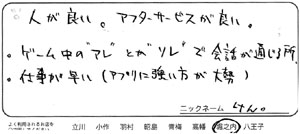 人が良い。アフターサービスが良い。
・ゲーム中の"アレ"とか"ソレ"で会話が通じる所、
・仕事が早い(アプリに強い方が大勢)
ニックネーム けん。
よく利用されるお店を
立川 小作 羽村 昭島 青梅 高幡 堀之内 八王子